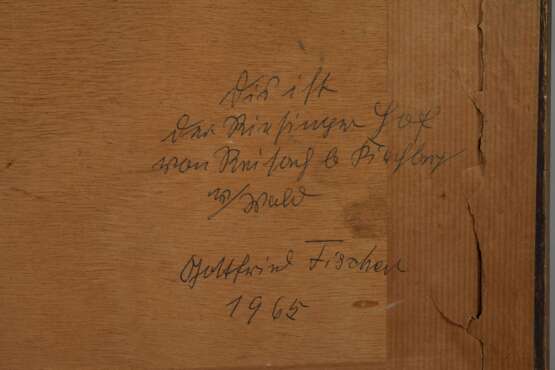 Dis ist
der Riesinger Hof
von Reisach b Kirchberg
v/Wald
Gottfried Fischer
1965